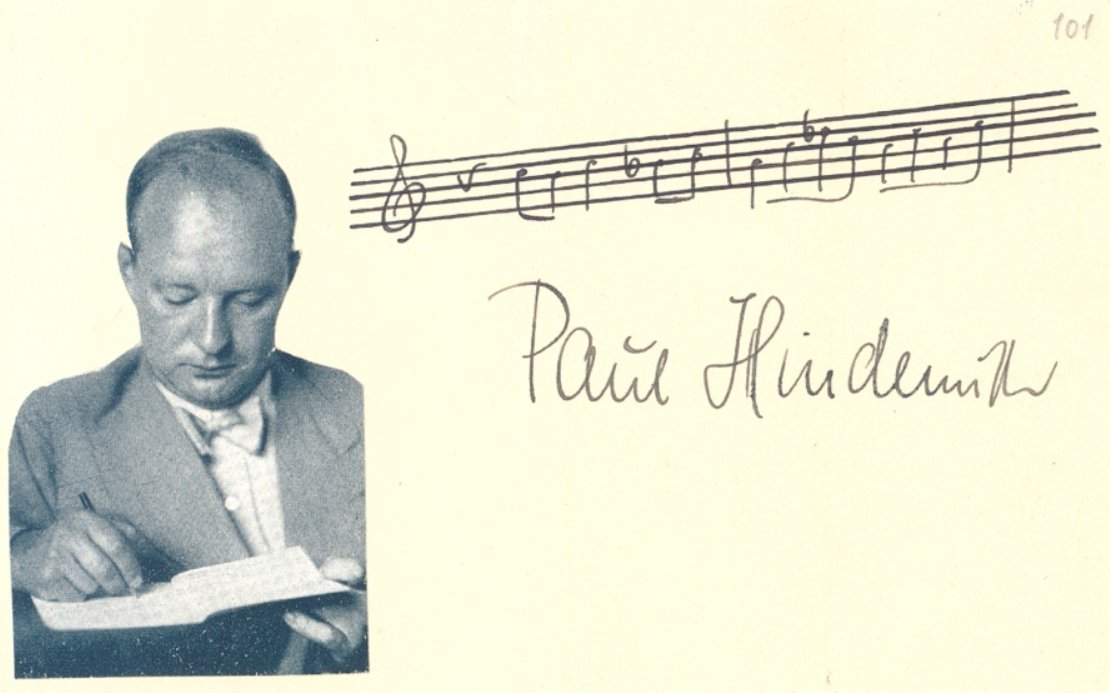 101
Paul Hindemith